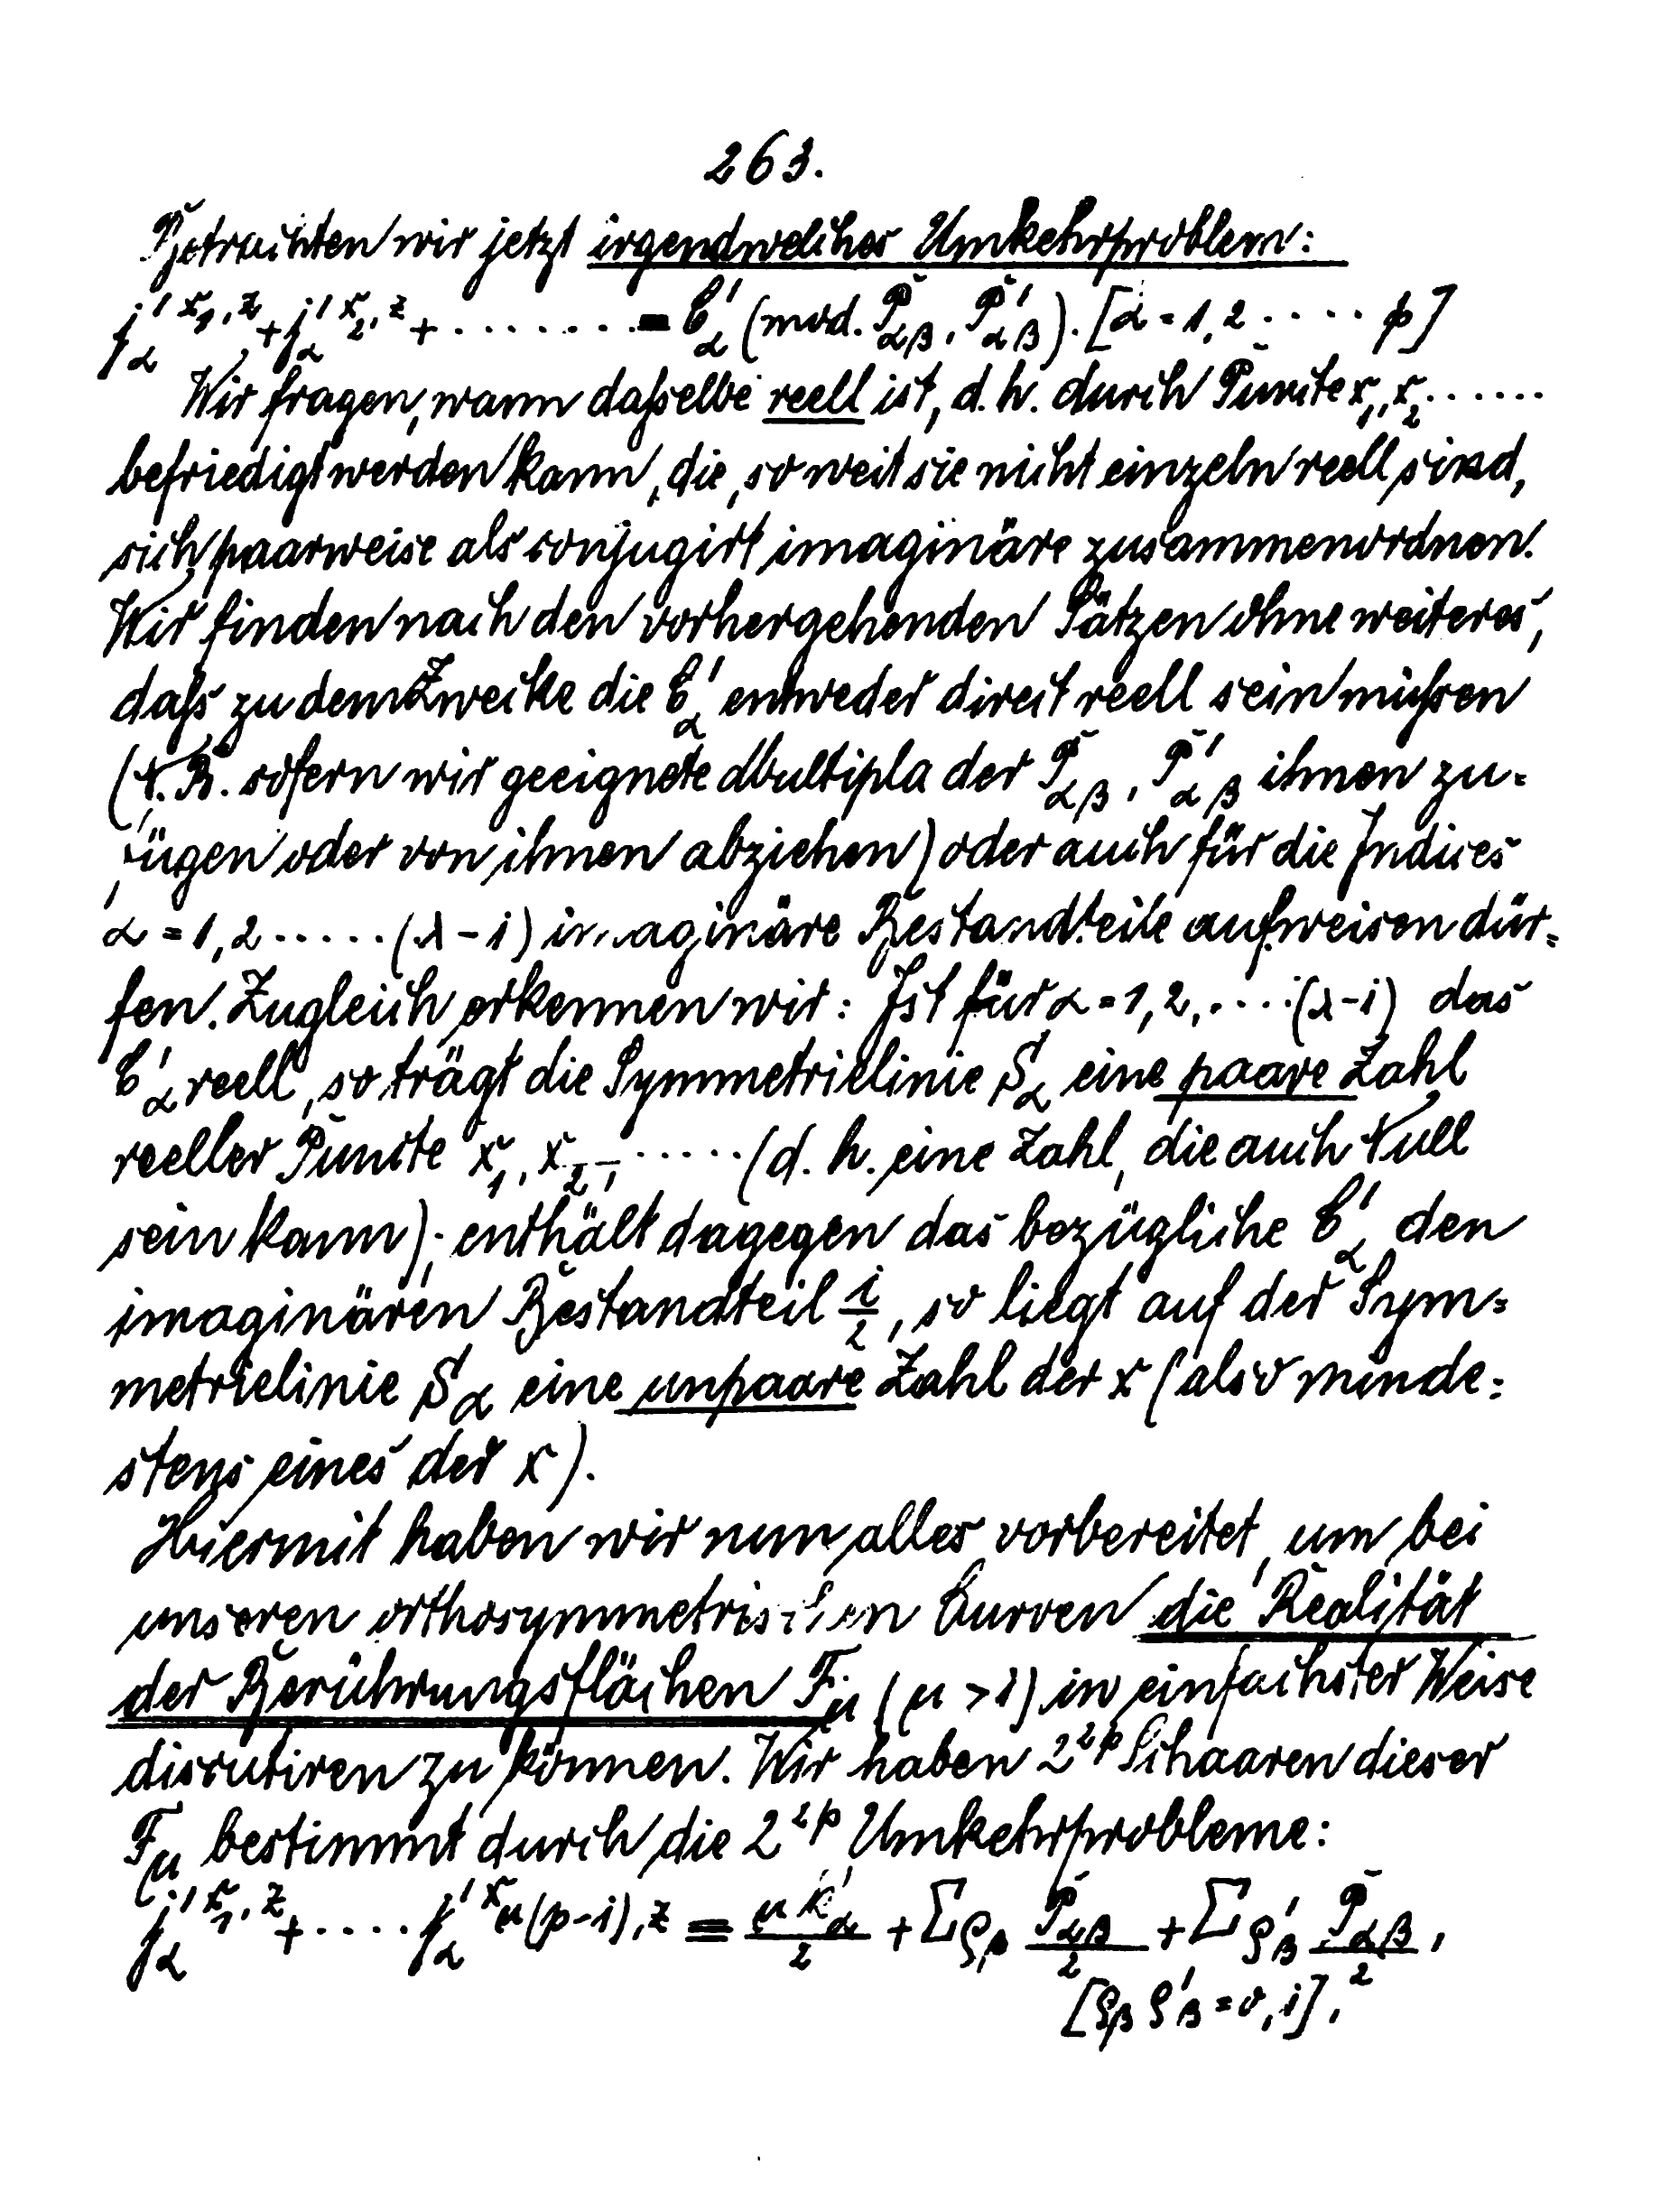 263.
Betrachten wir jetzt irgendwelches Umkehrproblem:
j'_α^{x_1, z} + j'_α^{x_2, z} + ........ ≡ C'_α (mod. P_αβ, P'_αβ). [α = 1, 2 ..... p]
Wir fragen, wann daſselbe reell ist, d. h. durch Puncte x_1, x_2 ......
befriedigt werden kann, die, so weit sie nicht einzeln reell sind,
sich paarweise als conjugirt imaginäre zusammenordnen.
Wir finden nach den vorhergehenden Sätzen ohne weiteres,
daſs zu dem Zwecke die C'_α entweder direct reell sein müſsen
(z. B. sofern wir geeignete Multipla der P_αβ, P'_αβ ihnen zu=
fügen oder von ihnen abziehen) oder auch für die Indices
α = 1, 2 ..... (λ-1) imaginäre Bestandteile aufweisen dür=
fen. Zugleich erkennen wir: Ist für α = 1, 2, .... (λ-1) das
C'_α reell, so trägt die Symmetrielinie S_α eine paare Zahl
reeller Puncte x_1, x_2, ..... (d. h. eine Zahl, die auch Null
sein kann); enthält dagegen das bezügliche C'_α den
imaginären Bestandteil i/2, so liegt auf der Sym=
metrielinie S_α eine unpaare Zahl der x (also minde=
stens eines der x).
Hiermit haben wir nun alles vorbereitet, um bei
unseren orthosymmetrischen Curven die Realität
der Berührungsflächen F_μ (μ > 1) in einfachster Weise
discutiren zu können. Wir haben 2^{2p} Schaaren dieser
F_μ bestimmt durch die 2^{2p} Umkehrprobleme:
j'_α^{x_1, z} + .... j'_α^{x_μ(p-1), z} ≡ μ k'_α/2 + Σ ρ_β P_αβ/2 + Σ ρ'_β P_αβ/2,
[ρ_β ρ'_β = 0, 1],